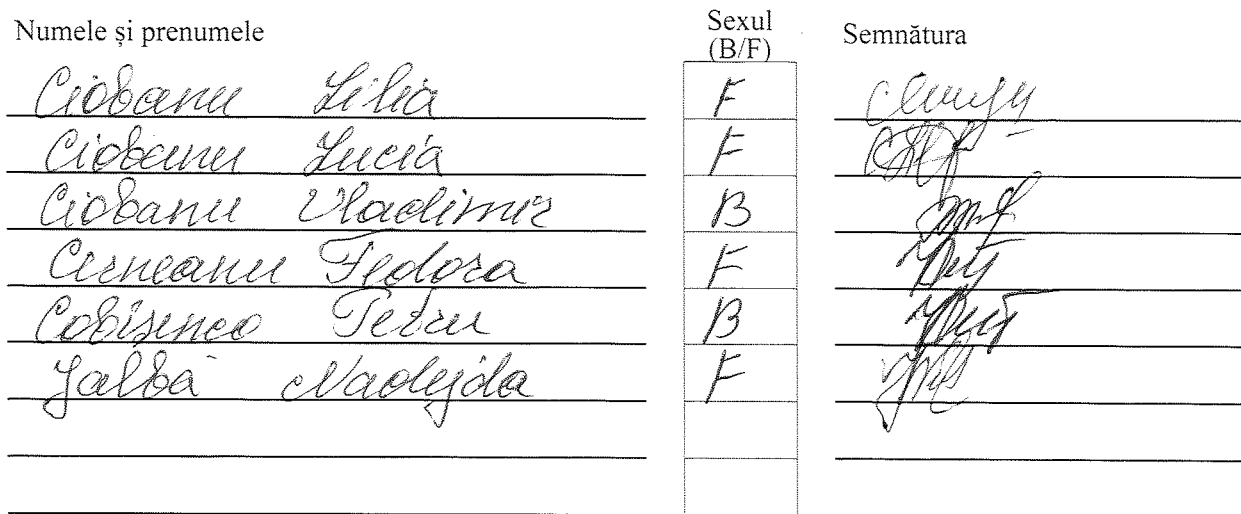 Numele și prenumele Sexul (B/F) Semnătura
Ciobanu Lilia F
Ciobanu Lucia F
Ciobanu Vladimir B
Cirneanu Fedora F
Petru B
Jalbă Nadejda F